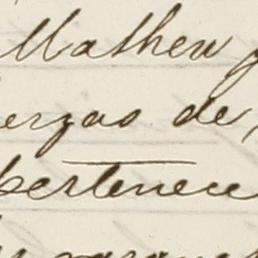 Matheu y
ergas de
pertenece